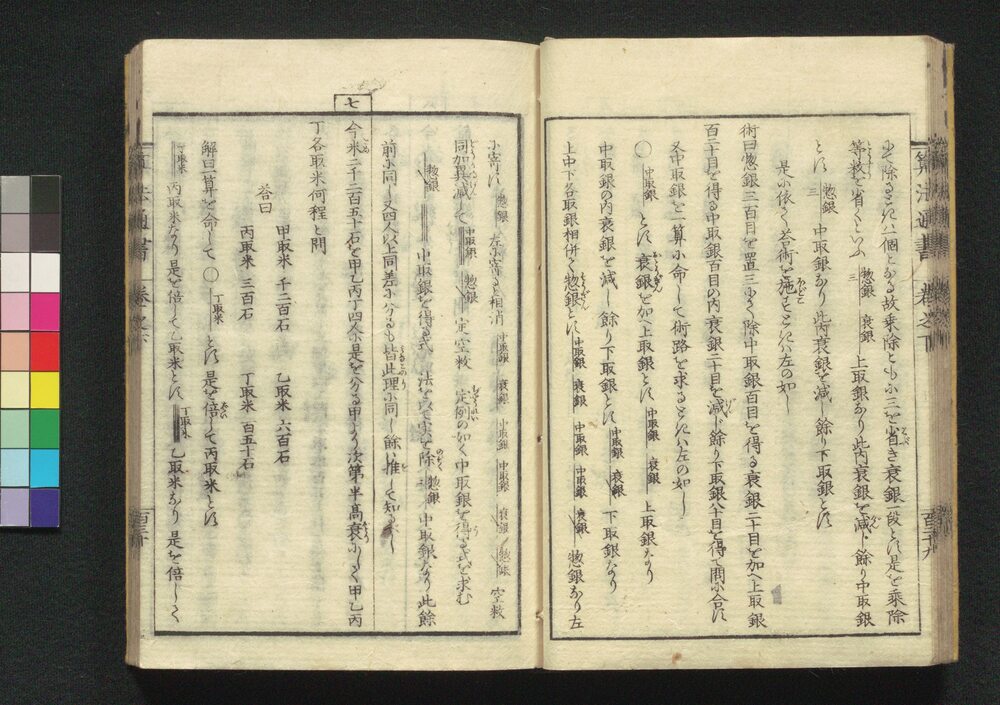 して除るときハ一個となる故乗除ともに三を省き衰銀一段とす是を乗除
等数を省くといふ 三 惣銀 衰銀 上取銀なり此内衰銀を減じ餘り中取銀
とす 三 惣銀 中取銀なり此内衰銀を減し餘り下取銀とす
是に依て答術を施すときハ左の如し
術曰惣銀三百目を置三にて除中取銀百目を得る衰銀二十目を加へ上取銀
百二十目を得る中取銀百目の内衰銀二十目を減じ餘り下取銀八十目を得て問に合す
又中取銀を一算に命して術路を求るときハ左の如し
〇 中取銀 とす 衰銀を加へ上取銀とす 中取銀 衰銀 上取銀なり
中取銀の内衰銀を減し餘り下取銀とす 中取銀 衰銀 下取銀なり
上中下各取銀相併て惣銀とす 中取銀 衰銀 中取銀 中取銀 衰銀 惣銀なり左
に寄す 惣銀 左に寄ると相消 中取銀 衰銀 中取銀 中取銀 衰銀 惣銀 空数
同加異減して 中取銀 惣銀 定空数 定例の如く中取銀を得る式を求む
惣銀 中取銀を得る式 法を以て実を除 三 惣銀 中取銀なり此餘
前に同し又四人以上同差に分るも皆此理に同し餘ハ推して知るべし
七
今米二千二百五十石を甲乙丙丁四人に是を分る甲より次第半高衰にして甲乙丙
丁各取米何程と問
答曰
甲取米 千二百石 乙取米 六百石
丙取米 三百石 丁取米 百五十石
解曰一算を命して 〇 丁取米 とす 是を倍して丙取米とす
丁取米 丙取米なり是を倍して乙取米とす 丁取米 乙取米なり 是を倍して
算法通書 巻之下 百二十九
算法通書 巻之下 百三十